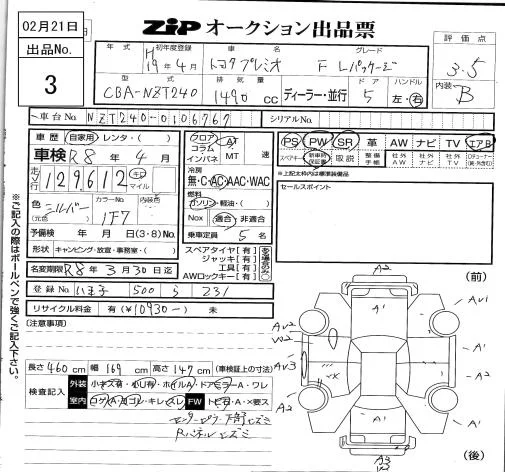 02月21日
ZIP オークション出品票
出品No.
3
年式 初年度登録 車名 グレード
H19年4月 トヨタプレミオ F Lパッケージ
評価点
3.5
型式 排気量 ドア ハンドル
CBA-NZT240 1490cc ディーラー・並行 5 左・右
内装
B
車台No. NZT240-0106767 シリアルNo.
車歴 自家用・レンタ・( )
車検 R8年4月
走行 129612 キロ マイル
色(元色) シルバー カラーNo. 1F7 内装色
予備検 年 月 日(3・8)No.
形状 キャンピング・放宣・事務室・( )
名変期限 R8年3月30日迄
フロア コラム インパネ AT MT 速
冷房
無・C・AC・AAC・WAC
燃料
ガソリン・軽油・( )
Nox 適合・非適合
乗車定員 5名
スペアタイヤ[有]
ジャッキ[有]
工具[有]
AWロックキー[有]
PS PW SR 革 AW ナビ TV エアB
スペアキー 新車時保証書 取説 整備手帳 社外AW 社外ナビ 社外TV
※上記太枠内は標準装備品
セールスポイント
登録No. 八王子 500 ら 231
リサイクル料金 有(¥10930-) 未
(注意事項)
長さ460cm 幅169cm 高さ147cm (車検証上の寸法)
検査記入
外装 小キズ有・小U有・ホイルA・ドアミラーA・ワレ
室内 コゲA・ヨゴレ・キレ・スレ FW トビ石・A・×要ス
Rパネルヒズミ
※ご記入の際はボールペンで強くご記入下さい。
(前)
A2
A1
AV1
AV2
UO2
A1
AV3
A2
A1
A1
A3
(後)